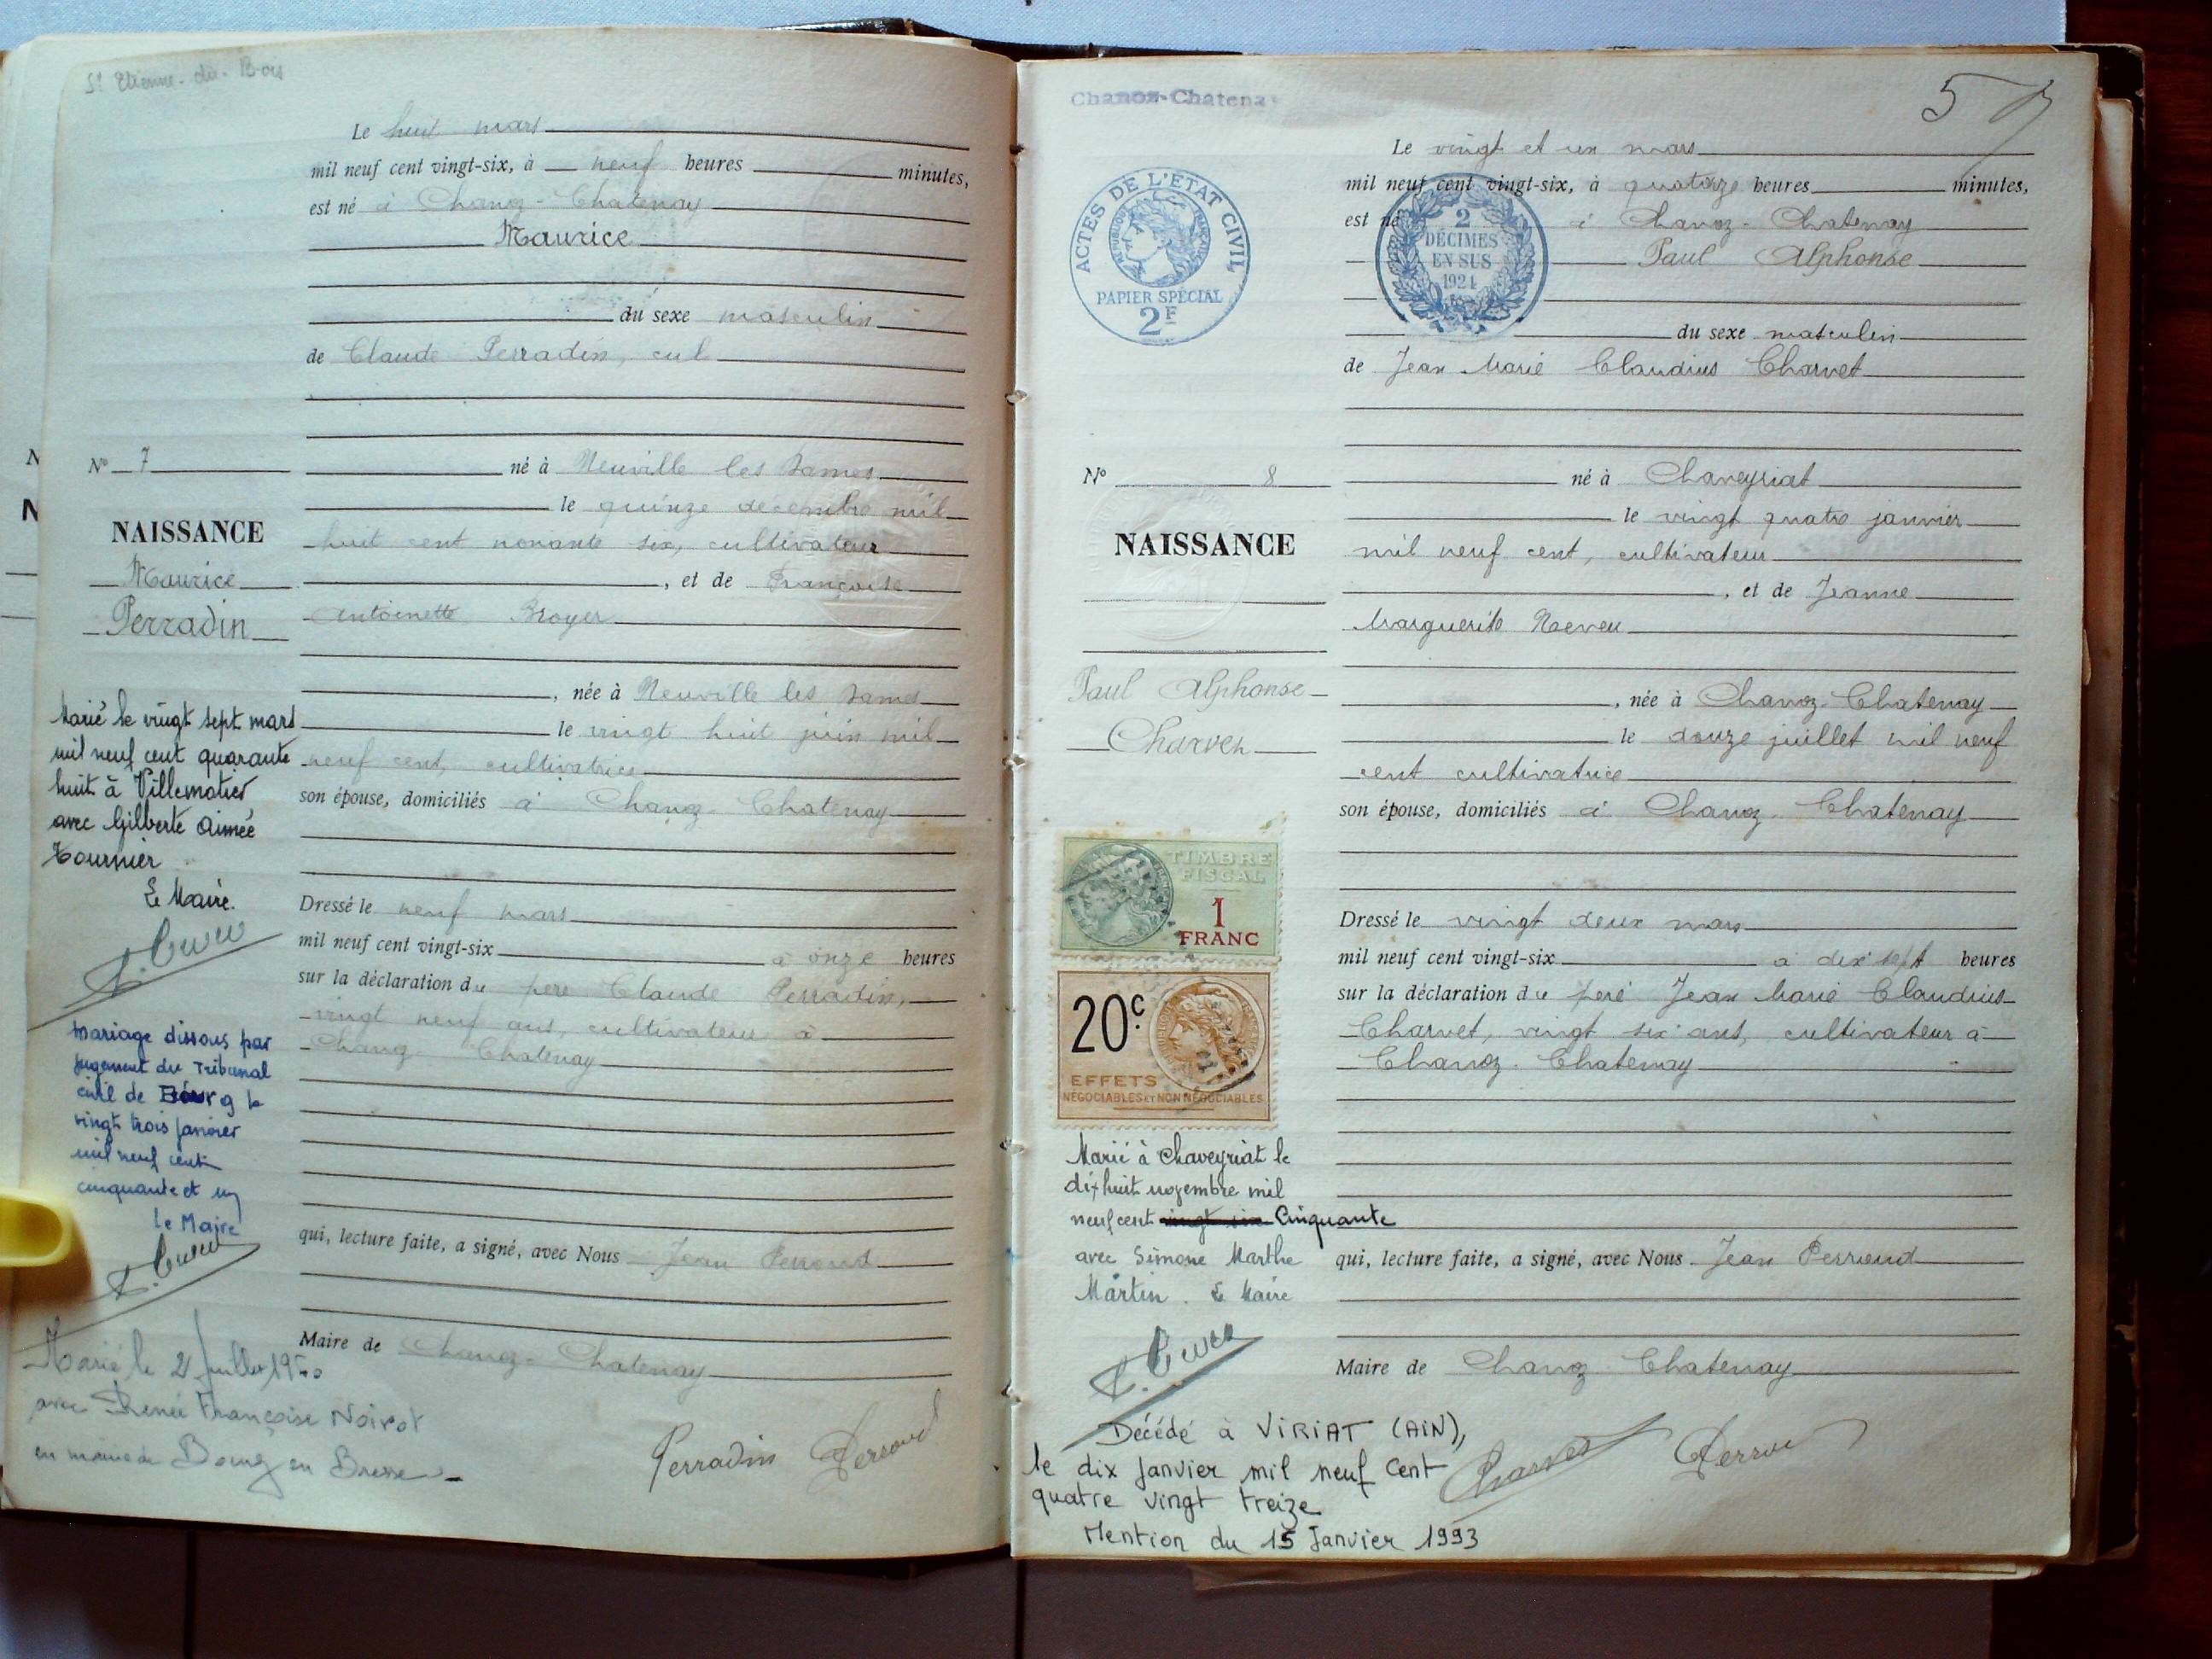 St Etienne-du-Bois
Le huit mars
mil neuf cent vingt-six, à neuf heures minutes,
est né à Chanoz-Chatenay
Maurice
du sexe masculin
de Claude Perradin, cul
né à Neuville les Dames
le quinze décembre mil
huit cent nonante six, cultivateur
, et de Françoise
Antoinette Broyer
, née à Neuville les Dames
le vingt huit juin mil
neuf cent, cultivatrice
son épouse, domiciliés à Chanoz-Chatenay
Dressé le neuf mars
mil neuf cent vingt-six à onze heures
sur la déclaration du père Claude Perradin,
vingt neuf ans, cultivateur à
Chanoz-Chatenay
qui, lecture faite, a signé, avec Nous Jean Perroud
Maire de Chanoz-Chatenay
Perradin Perroud
N° 7
NAISSANCE
Maurice
Perradin
Marié le vingt sept mars
mil neuf cent quarante
huit à Villemotier
avec Gilberte Aimée
Tournier
Le Maire.
Mariage dissous par
jugement du Tribunal
civil de Bourg le
vingt trois janvier
mil neuf cent
cinquante et un
le Maire
Marié le 21 juillet 19
avec Renée Françoise Noirot
en mairie de Bourg en Bresse
Chanoz-Chatenay
5
ACTES DE L'ÉTAT CIVIL
RÉPUBLIQUE FRANÇAISE
PAPIER SPÉCIAL
2F
2
DÉCIMES
EN SUS
1924
Le vingt et un mars
mil neuf cent vingt-six, à quatorze heures minutes,
est né à Chanoz-Chatenay
Paul Alphonse
du sexe masculin
de Jean Marie Claudius Charvet
né à Chaveyriat
le vingt quatre janvier
mil neuf cent, cultivateur
, et de Jeanne
Marguerite Neveu
, née à Chanoz-Chatenay
le douze juillet mil neuf
cent cultivatrice
son épouse, domiciliés à Chanoz-Chatenay
Dressé le vingt deux mars
mil neuf cent vingt-six à dix sept heures
sur la déclaration du père Jean Marie Claudius
Charvet, vingt six ans, cultivateur à
Chanoz-Chatenay
qui, lecture faite, a signé, avec Nous Jean Perroud
Maire de Chanoz-Chatenay
Charvet Perroud
N° 8
NAISSANCE
Paul Alphonse
Charvet
TIMBRE
FISCAL
1
FRANC
20c.
EFFETS
NÉGOCIABLES ET NON NÉGOCIABLES
Marié à Chaveyriat le
dix huit novembre mil
neuf cent vingt six Cinquante
avec Simone Marthe
Martin. Le Maire
Décédé à VIRIAT (AIN),
le dix janvier mil neuf cent
quatre vingt treize
Mention du 15 Janvier 1993